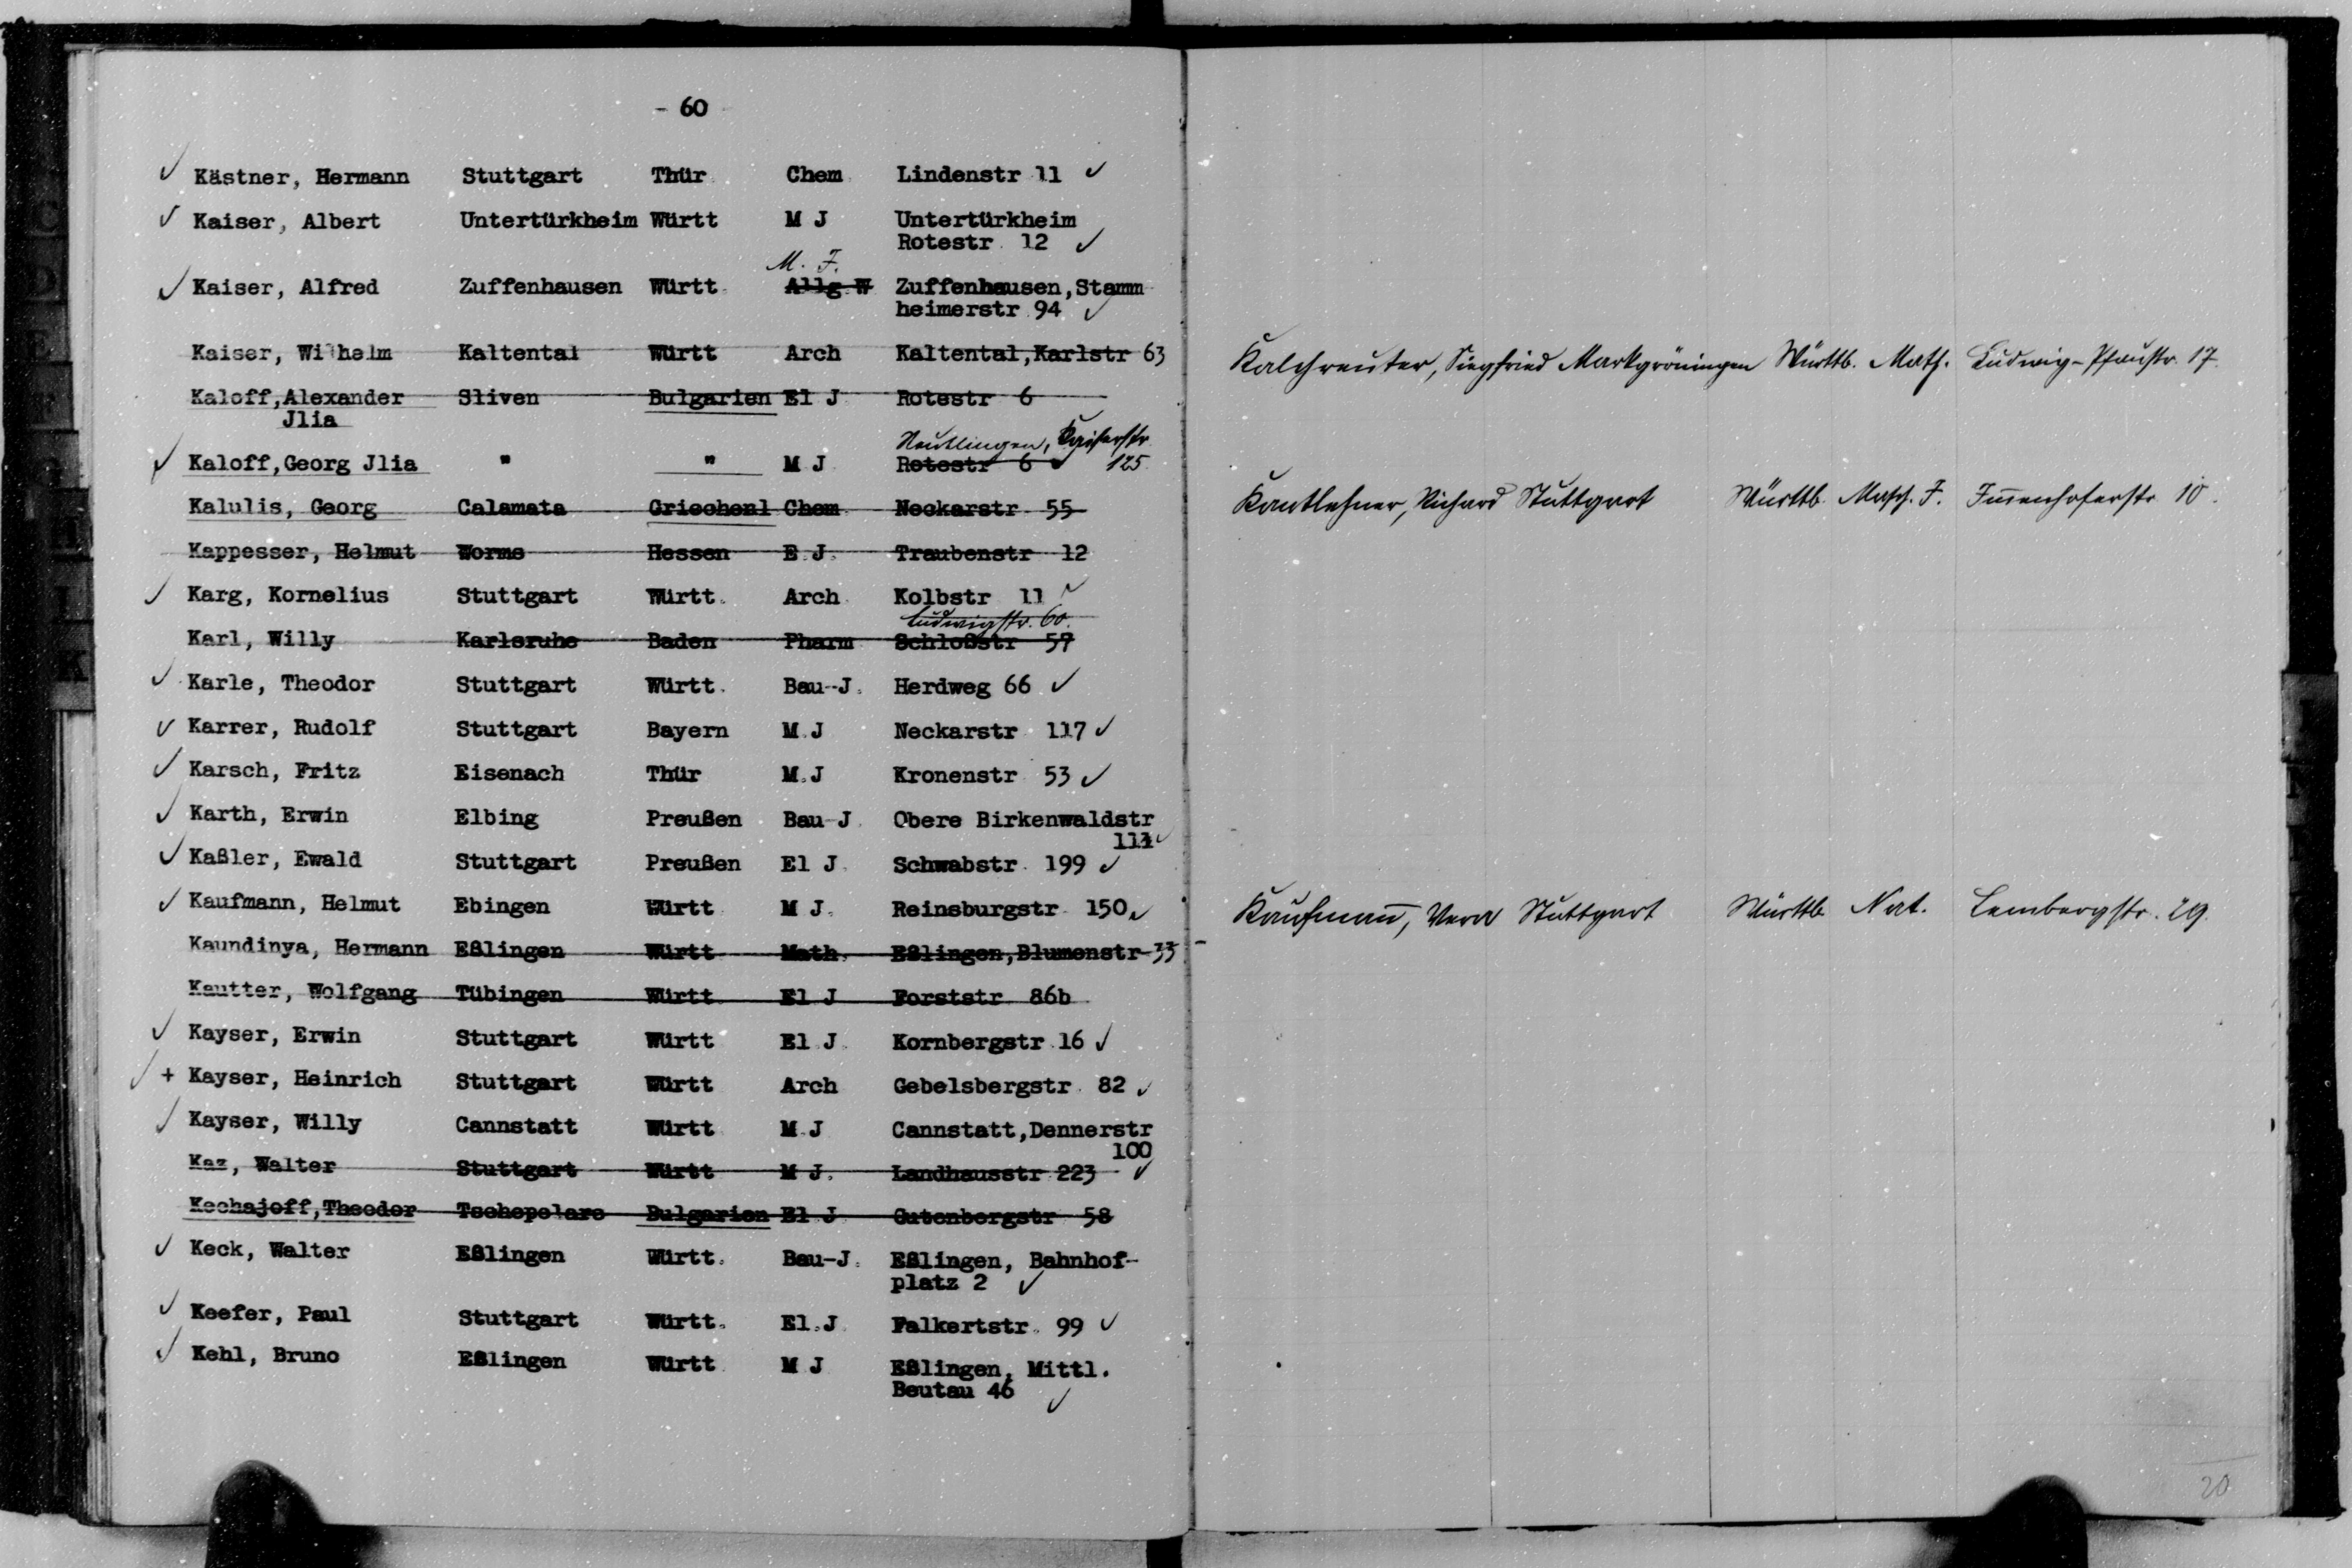 - 60
Kästner, Hermann Stuttgart Thür. Chem. Lindenstr. 11
Kaiser, Albert Untertürkheim Württ. M.J. Untertürkheim
Rotestr. 12
M. J.
Kaiser, Alfred Zuffenhausen Württ. Allg.W Zuffenhausen,Stamm-
heimerstr. 94
Kaiser, Wilhelm Kaltental Württ. Arch. Kaltental,Karlstr 63
Kaloff,Alexander Sliven Bulgarien El J. Rotestr. 6
Jlia
Reutlingen, Kaiserstr.
Kaloff,Georg Jlia " " M.J. Rotestr 6 125
Kalulis, Georg Calamata Griechenl Chem. Neckarstr. 55
Kappesser, Helmut Worms Hessen E.J. Traubenstr. 12
Karg, Kornelius Stuttgart Württ. Arch. Kolbstr. 11
Ludwigstr. 60.
Karl, Willy Karlsruhe Baden Pharm. Schloßstr. 57
Karle, Theodor Stuttgart Württ. Bau-J. Herdweg 66
Karrer, Rudolf Stuttgart Bayern M.J. Neckarstr. 117
Karsch, Fritz Eisenach Thür. M.J. Kronenstr. 53
Karth, Erwin Elbing Preußen Bau-J. Obere Birkenwaldstr.
Kaßler, Ewald Stuttgart Preußen El J. Schwabstr. 199
Kaufmann, Helmut Ebingen Württ. M.J. Reinsburgstr. 150
Kaundinya, Hermann Eßlingen Württ. Math. Eßlingen,Blumenstr 33
Kautter, Wolfgang Tübingen Württ. El J. Forststr. 86b
Kayser, Erwin Stuttgart Württ. El.J. Kornbergstr. 16
+ Kayser, Heinrich Stuttgart Württ. Arch. Gebelsbergstr. 82
Kayser, Willy Cannstatt Württ. M.J. Cannstatt,Dennerstr.
100
Kaz, Walter Stuttgart Württ. M.J. Landhausstr. 223
Kechajoff,Theodor Tschepelare Bulgarien El J. Gutenbergstr. 58
Keck, Walter Eßlingen Württ. Bau-J. Eßlingen, Bahnhof-
platz 2
Keefer, Paul Stuttgart Württ. El.J. Falkertstr. 99
Kehl, Bruno Eßlingen Württ. M.J. Eßlingen, Mittl.
Beutau 46
Kalchreuter, Siegfried Markgröningen Württb. Math. Ludwig-Pfaustr. 17.
Kantlehner, Richard Stuttgart Württb. Masch. J. Immenhoferstr. 10.
Kaufmann, Vera Stuttgart Württb. Nat. Lembergstr. 29.
20